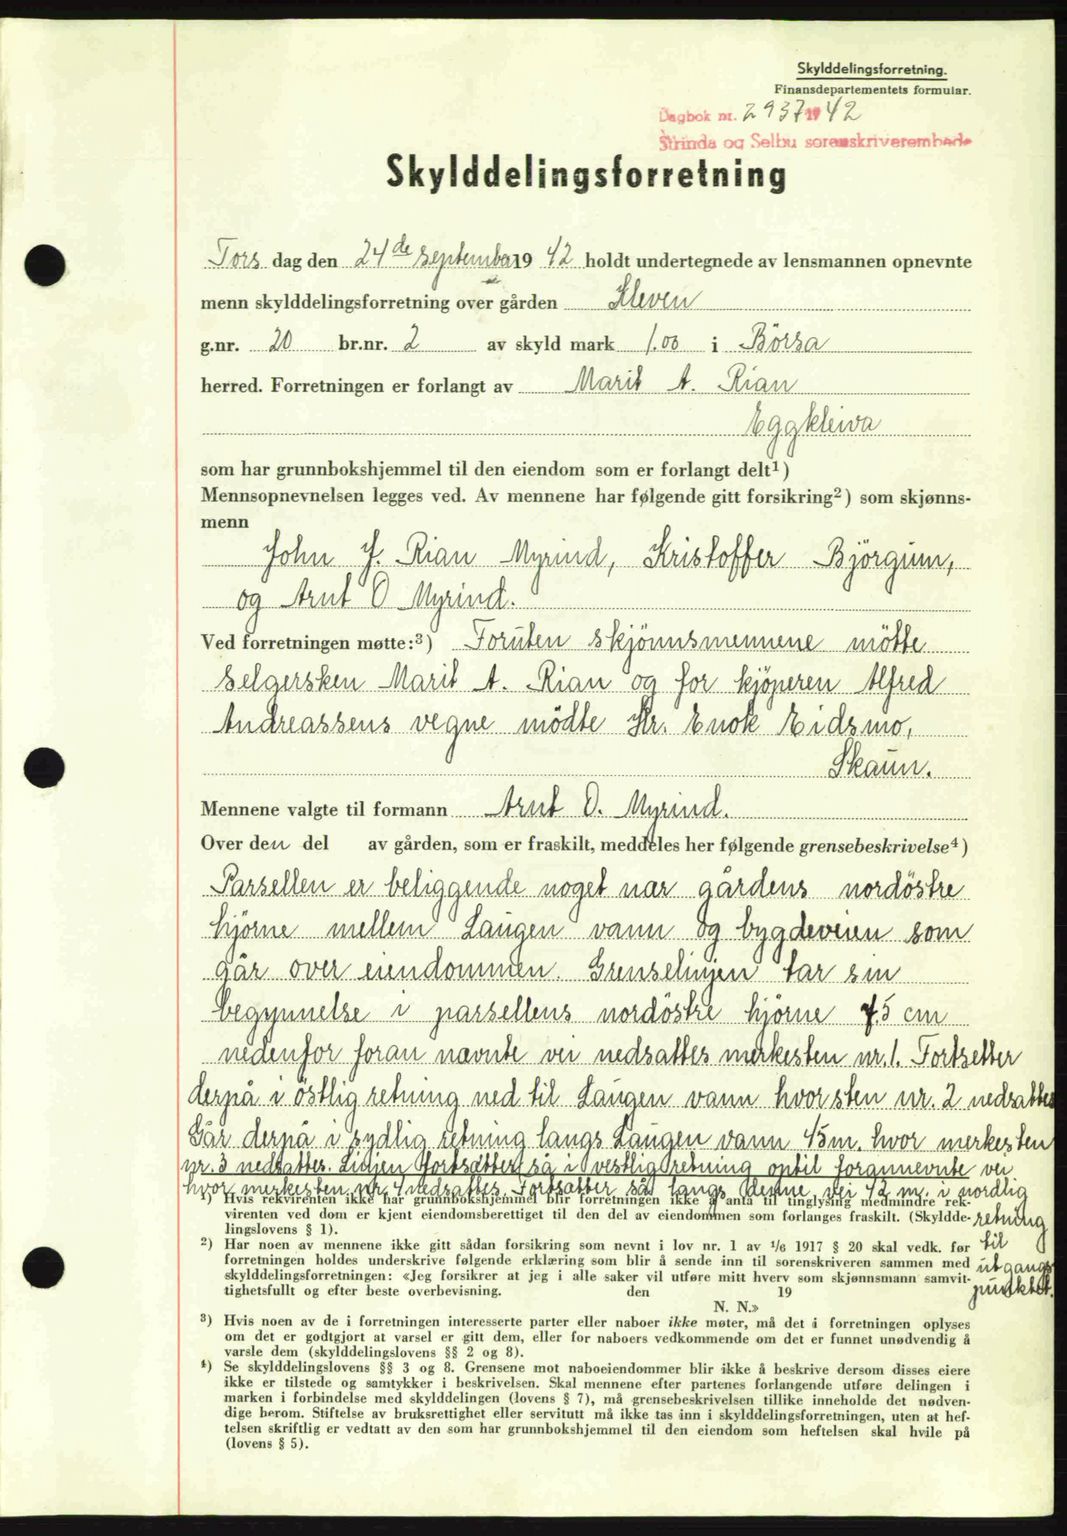 Skylddelingsforretning.
Finansdepartementets formular.
Dagbok nr. 2937 1942
Strinda og Selbu sorenskriverembede
Skylddelingsforretning
Tors dag den 24de september 1942 holdt undertegnede av lensmannen opnevnte
menn skylddelingsforretning over gården Kleven
g.nr. 20 br.nr. 2 av skyld mark 1.00 i Börsa
herred. Forretningen er forlangt av Marit A. Rian
Eggkleiva
som har grunnbokshjemmel til den eiendom som er forlangt delt¹)
Mennsopnevnelsen legges ved. Av mennene har følgende gitt forsikring²) som skjønns-
menn
John J. Rian Myrind, Kristoffer Björgum,
og Arnt O Myrind.
Ved forretningen møtte:³) Foruten skjönnsmennene mötte
selgersken Marit A. Rian og for kjöperen Alfred
Andreassens vegne mödte Hr. Enok Eidsmo,
Skaun.
Mennene valgte til formann Arnt O. Myrind.
Over den del av gården, som er fraskilt, meddeles her følgende grensebeskrivelse⁴)
Parsellen er beliggende noget nær gårdens nordöstre
hjörne mellem Laugen vann og bygdeveien som
går over eiendommen. Grenselinjen tar sin
begynnelse i parsellens nordöstre hjörne 75 cm
nedenfor foran nævnte vei nedsattes merkesten nr. 1. Fortsetter
derpå i östlig retning ned til Laugen vann hvor sten nr. 2 nedsattes
Går derpå i sydlig retning langs Laugen vann 45 m. hvor merkesten
nr. 3 nedsattes. Linjen fortsætter så i vestlig retning optil forannevnte vei
hvor merkesten nr. 4 nedsattes. Fortsætter så langs denne vei 42 m. i nordlig
retning
til
utgangs-
punktet.
¹) Hvis rekvirenten ikke har grunnbokshjemmel blir forretningen ikke å anta til tinglysing medmindre rek-
virenten ved dom er kjent eiendomsberettiget til den del av eiendommen som forlanges fraskilt. (Skyldde-
lingslovens § 1).
²) Har noen av mennene ikke gitt sådan forsikring som nevnt i lov nr. 1 av 1/6 1917 § 20 skal vedk. før
forretningen holdes underskrive følgende erklæring som blir å sende inn til sorenskriveren sammen med
skylddelingsforretningen: «Jeg forsikrer at jeg i alle saker vil utføre mitt hverv som skjønnsmann samvit-
tighetsfullt og efter beste overbevisning. den 19
N. N.»
³) Hvis noen av de i forretningen interesserte parter eller naboer ikke møter, må det i forretningen oplyses
om det er godtgjort at varsel er gitt dem, eller for naboers vedkommende om det er funnet unødvendig å
varsle dem (skylddelingslovens §§ 2 og 8).
⁴) Se skylddelingslovens §§ 3 og 8. Grensene mot naboeiendommer blir ikke å beskrive dersom disses eiere
ikke er tilstede og samtykker i beskrivelsen. Skal mennene efter partenes forlangende utføre delingen i
marken i forbindelse med skylddelingen (lovens § 7), må grensebeskrivelsen tillike inneholde det nødven-
dige herom. Stiftelse av bruksrettighet eller servitutt må ikke tas inn i skylddelingsforretningen, uten at hef-
telsen skriftlig er vedtatt av den som har grunnbokshjemmel til den eiendom som heftelsen skal hvile på
(lovens § 5).